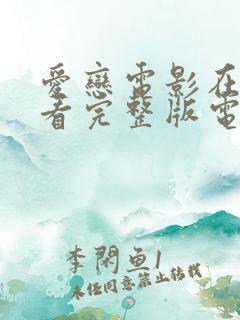 愛戀電影在
看完整版電
李閑魚1
未经同意禁止转载